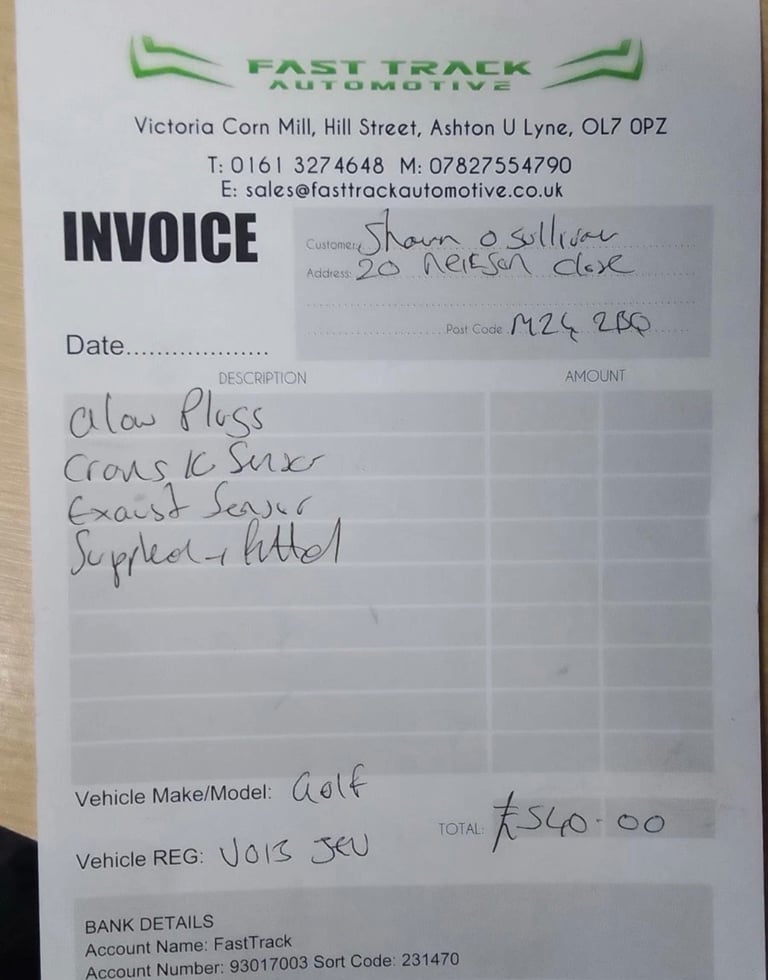 FAST TRACK
AUTOMOTIVE
Victoria Corn Mill, Hill Street, Ashton U Lyne, OL7 0PZ
T: 0161 3274648 M: 07827554790
E: sales@fasttrackautomotive.co.uk
INVOICE
Customer: Shaun O Sullivan
Address: 20 Close
Post Code M24 2BQ
Date...................
DESCRIPTION AMOUNT
Glow Plugs
Sensor
Exaust Sensor
Supplied + fitted
Vehicle Make/Model: Golf
TOTAL: £540.00
Vehicle REG: VO13 JEU
BANK DETAILS
Account Name: FastTrack
Account Number: 93017003 Sort Code: 231470